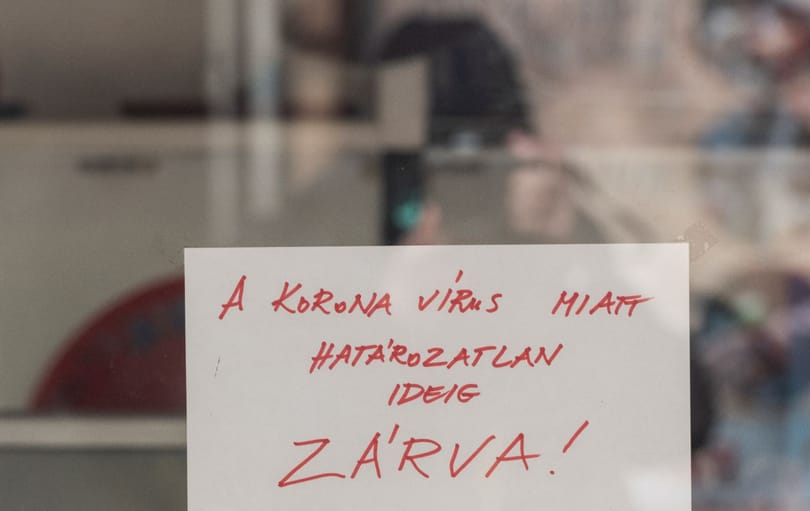 A KORONA VÍRUS MIATT
HATÁROZATLAN
IDEIG
ZÁRVA!